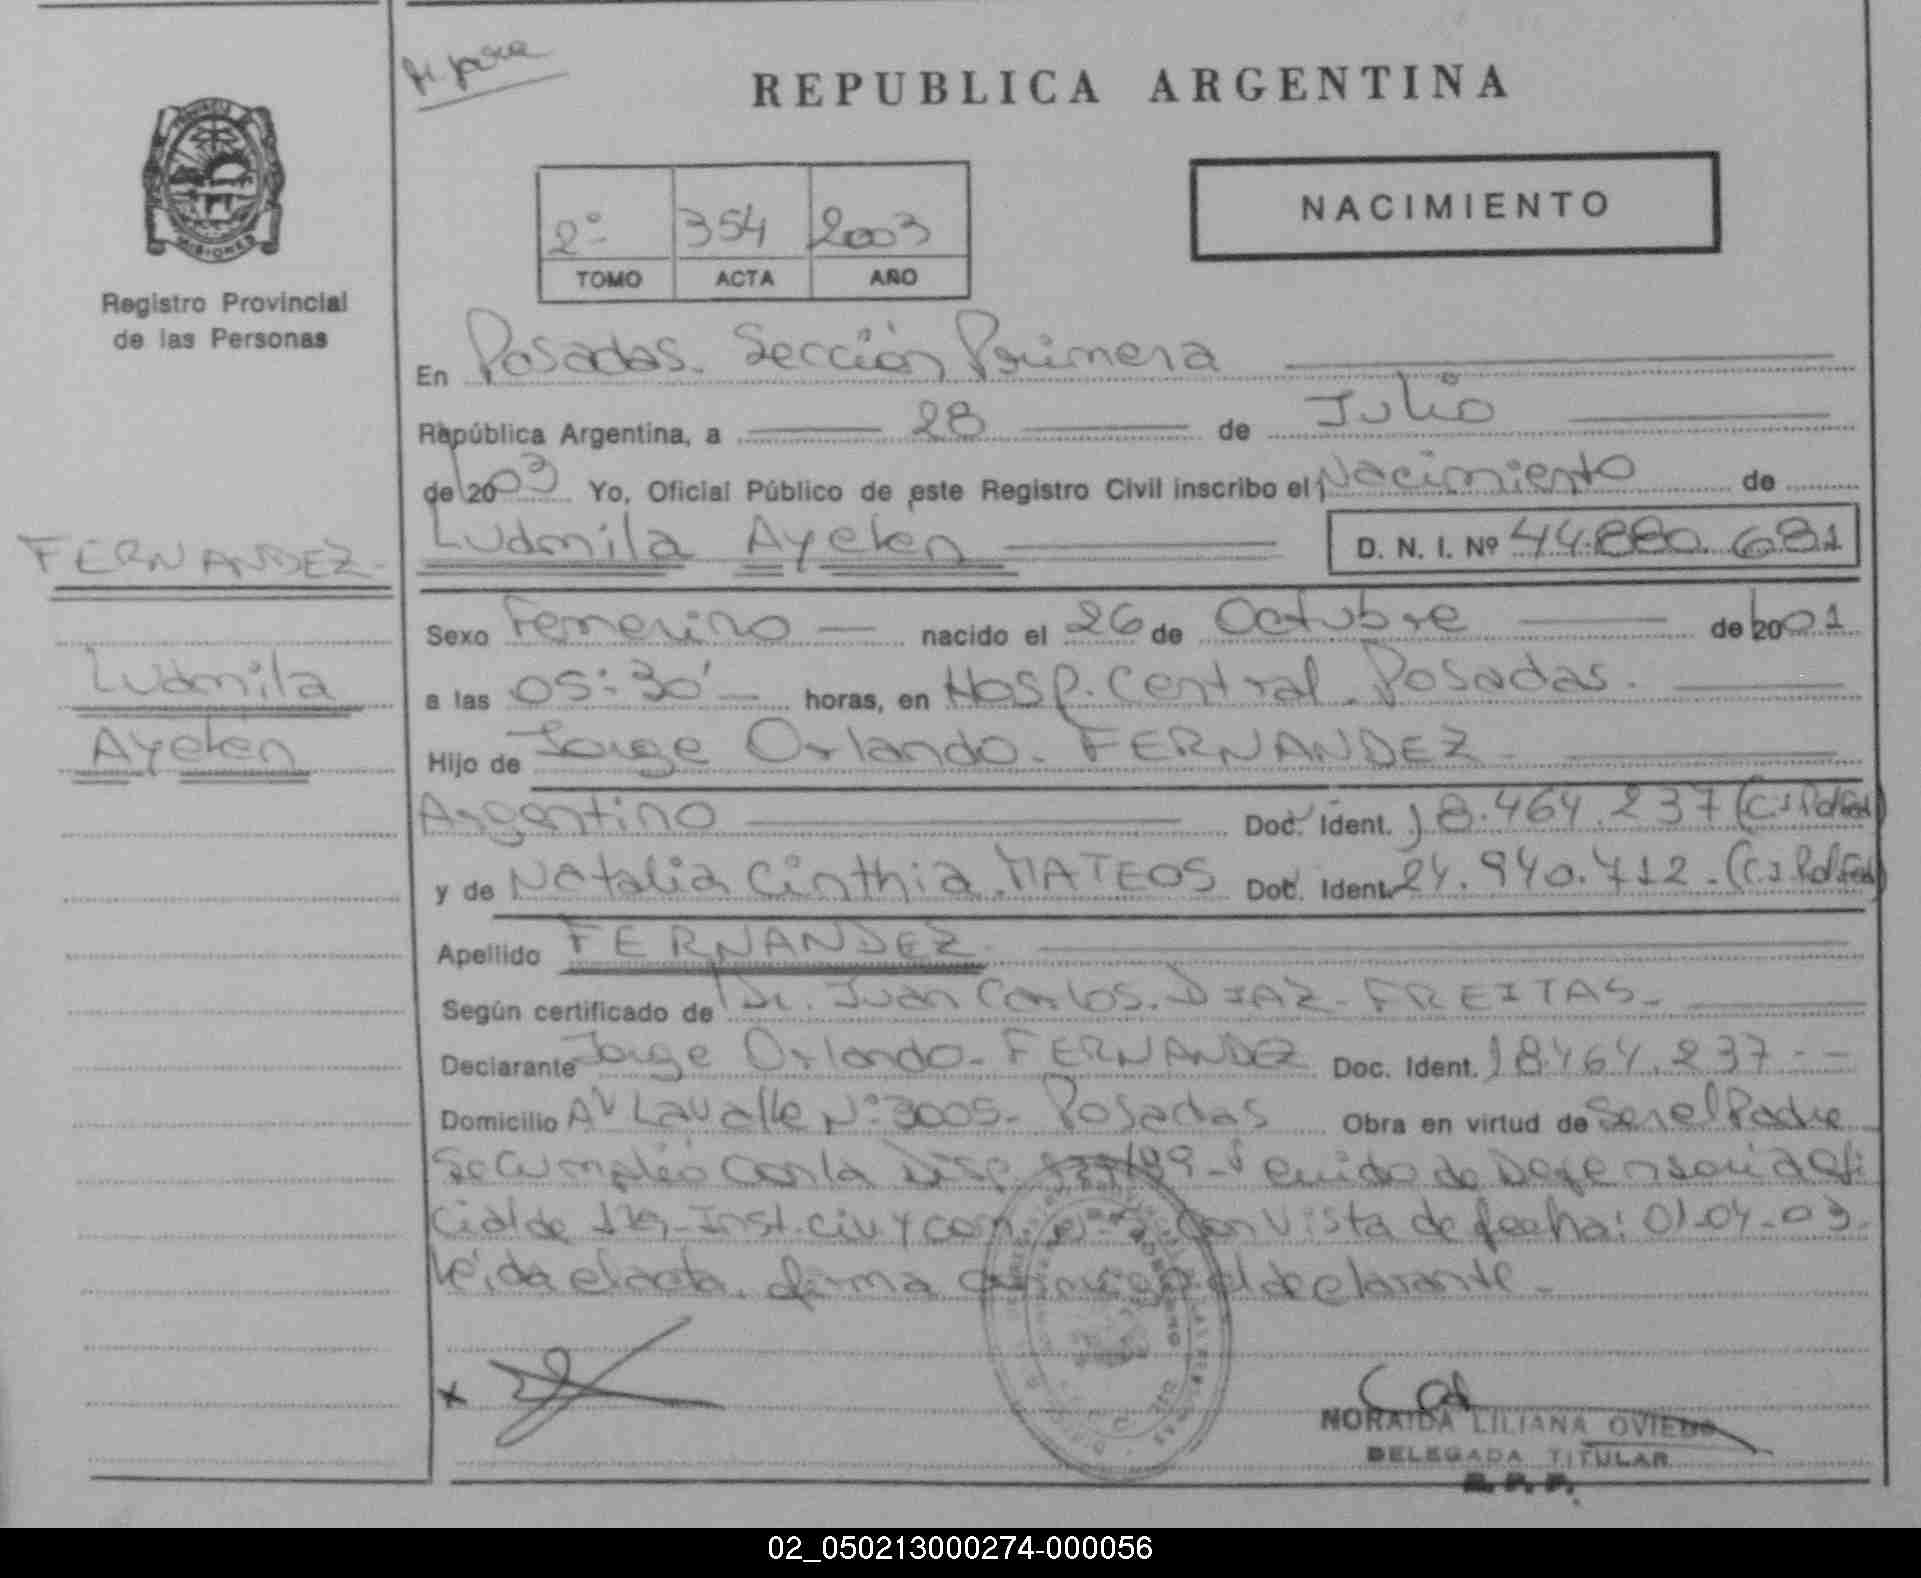 REPUBLICA ARGENTINA
MISIONES
Registro Provincial
de las Personas
2º 354 2003
TOMO ACTA AÑO
NACIMIENTO
En Posadas. Sección Primera
República Argentina, a 28 de Julio
de 2003 Yo, Oficial Público de este Registro Civil inscribo el Nacimiento de
Ludmila Ayelen D. N. I. Nº 44.880.681
FERNANDEZ
Ludmila
Ayelen
Sexo Femenino nacido el 26 de Octubre de 2001
a las 05:30' horas, en Hosp. Central. Posadas.
Hijo de Jorge Orlando. FERNANDEZ
Argentino Doc. Ident. 18.464.237 (C.I.Pol.Fed)
y de Natalia Cinthia. MATEOS Doc. Ident. 24.940.712.(C.I.Pol.Fed)
Apellido FERNANDEZ
Según certificado de Dr. Juan Carlos. DIAZ. FREITAS.
Declarante Jorge Orlando. FERNANDEZ Doc. Ident. 18.464.237
Domicilio Av Lavalle Nº 3005. Posadas Obra en virtud de Ser el Padre
Se Cumplió con la Disp. de Defensoria Ofi
cial de 1ra. Inst. Civ y Com. con Vista de fecha: 01-04-03.
leída el acta, firma conmigo el declarante.
x
NORAIDA LILIANA OVIEDO
DELEGADA TITULAR
R. P. P.
02_050213000274-000056